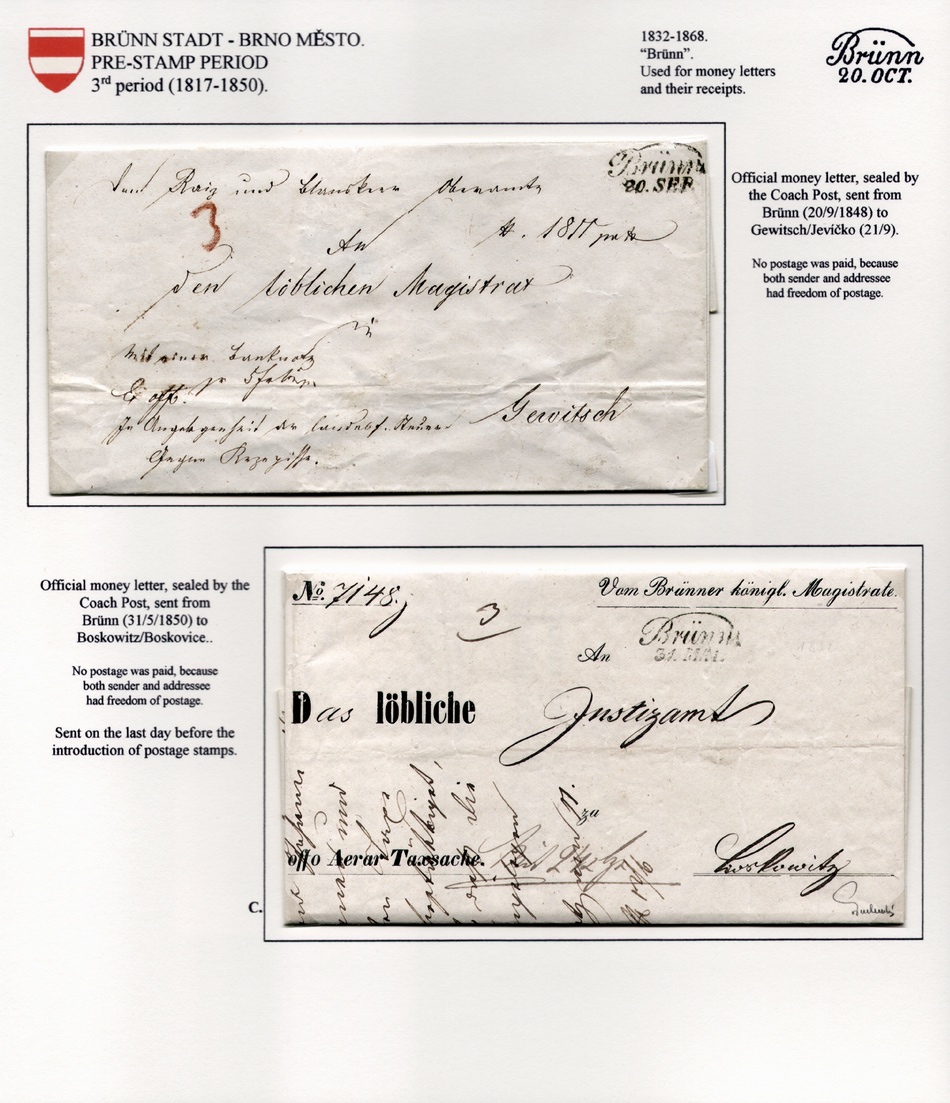 BRÜNN STADT - BRNO MĚSTO.
PRE-STAMP PERIOD
3rd period (1817-1850).
1832-1868.
“Brünn”.
Used for money letters
and their receipts.
Brünn
20. OCT.
Brünn
20. SEP.
Vom Raiz und Blansker Oberamte
3
An
den löblichen Magistrat
in
Mit einer Banknote
Ex offo.
Gewitsch
In Angelegenheit der landesf. Steuer
Gegen Rezepisse.
Official money letter, sealed by
the Coach Post, sent from
Brünn (20/9/1848) to
Gewitsch/Jevičko (21/9).
No postage was paid, because
both sender and addressee
had freedom of postage.
Official money letter, sealed by the
Coach Post, sent from
Brünn (31/5/1850) to
Boskowitz/Boskovice..
No postage was paid, because
both sender and addressee
had freedom of postage.
Sent on the last day before the
introduction of postage stamps.
C.
No. 7148.
3
Vom Brünner königl. Magistrate.
Brünn
31. MAI.
An
Das löbliche
Justizamt
zu
offo Aerar Taxsache.
Boskowitz